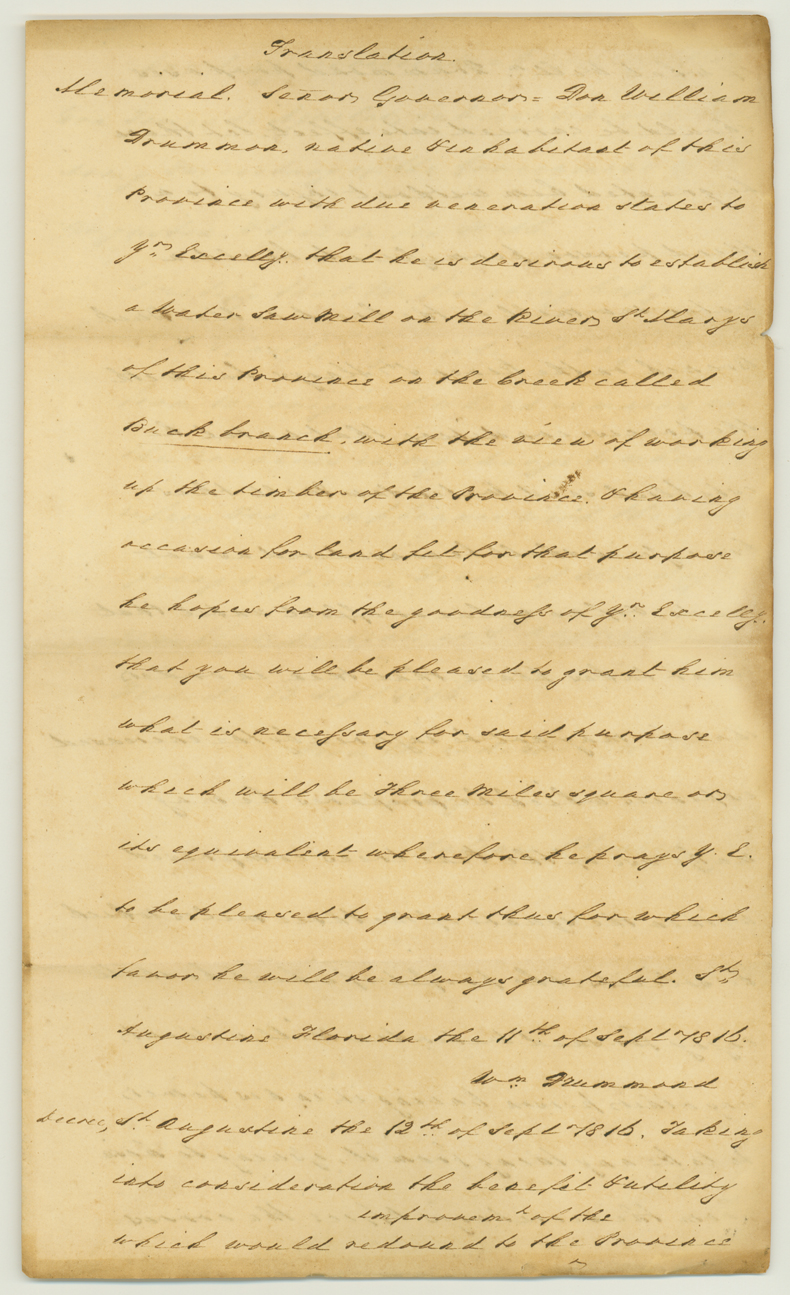 Translation.
Memorial. Senor Governor = Don William
Drummon, native & inhabitant of this
Province with due veneration states to
Yr. Excelly. that he is desirous to establish
a Water Saw Mill on the River St. Marys
of this Province on the Creek called
Buck branch, with the view of working
up the timber of the Province. & having
occasion for land fit for that purpose
he hopes from the goodness of Yr. Excelly.
that you will be pleased to grant him
what is necessary for said purpose
which will be Three Miles square or
its equivalent wherefore he prays Y. E.
to be pleased to grant thus for which
favor he will be always grateful. St.
Augustine Florida the 11th of Septr 1816.
Wm. Drummond
Decree, St. Augustine the 12th of Septr 1816. Taking
into consideration the benefit & utility
improvemt of the
which would redound to the Province